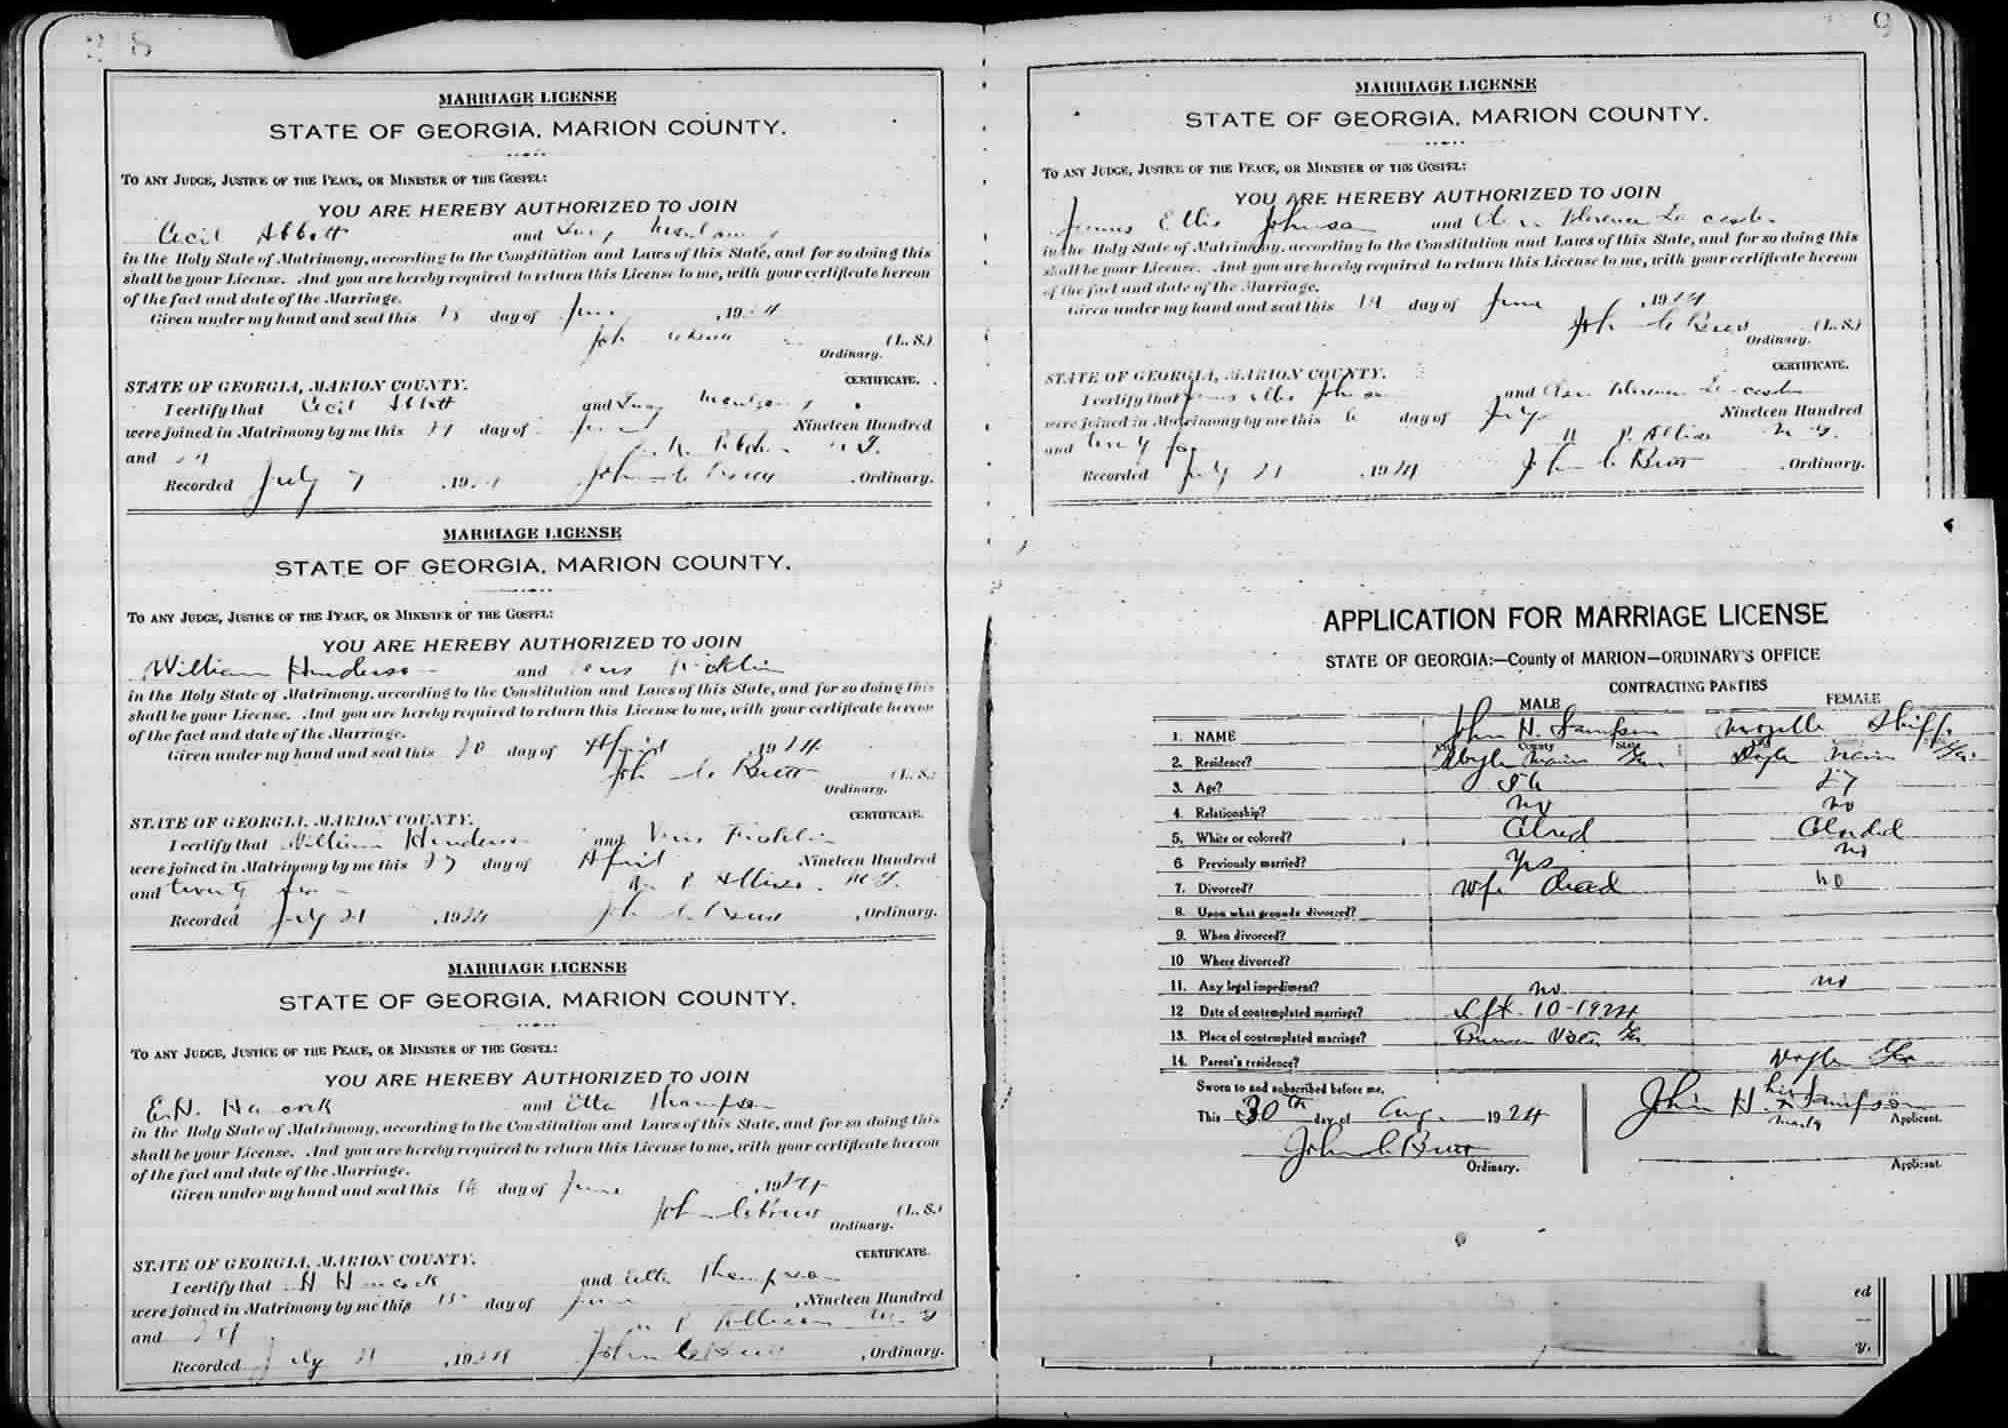 8
MARRIAGE LICENSE
STATE OF GEORGIA, MARION COUNTY.
TO ANY JUDGE, JUSTICE OF THE PEACE, OR MINISTER OF THE GOSPEL:
YOU ARE HEREBY AUTHORIZED TO JOIN
Cecil Abbott and Lucy
in the Holy State of Matrimony, according to the Constitution and Laws of this State, and for so doing this
shall be your License. And you are hereby required to return this License to me, with your certificate hereon
of the fact and date of the Marriage.
Given under my hand and seal this day of June , 1924
John C Butt (L. S.)
Ordinary.
STATE OF GEORGIA, MARION COUNTY. CERTIFICATE.
I certify that Cecil Abbott and Lucy
were joined in Matrimony by me this day of Nineteen Hundred
and 24
Recorded July 7 , 1924 John C Butt , Ordinary.
MARRIAGE LICENSE
STATE OF GEORGIA, MARION COUNTY.
TO ANY JUDGE, JUSTICE OF THE PEACE, OR MINISTER OF THE GOSPEL:
YOU ARE HEREBY AUTHORIZED TO JOIN
William Henderson and Ficklin
in the Holy State of Matrimony, according to the Constitution and Laws of this State, and for so doing this
shall be your License. And you are hereby required to return this License to me, with your certificate hereon
of the fact and date of the Marriage.
Given under my hand and seal this day of April , 1924
John C Butt (L. S.
Ordinary.
STATE OF GEORGIA, MARION COUNTY. CERTIFICATE.
I certify that William Henderson and Ficklin
were joined in Matrimony by me this day of April Nineteen Hundred
and twenty four
Recorded July 21 , 1924 John C Butt , Ordinary.
MARRIAGE LICENSE
STATE OF GEORGIA, MARION COUNTY.
TO ANY JUDGE, JUSTICE OF THE PEACE, OR MINISTER OF THE GOSPEL:
YOU ARE HEREBY AUTHORIZED TO JOIN
E.H. Hancock and Etta Thompson
in the Holy State of Matrimony, according to the Constitution and Laws of this State, and for so doing this
shall be your License. And you are hereby required to return this License to me, with your certificate hereon
of the fact and date of the Marriage.
Given under my hand and seal this 14 day of June , 1924
John C Butt (L. S.)
Ordinary.
STATE OF GEORGIA, MARION COUNTY. CERTIFICATE.
I certify that H Hancock and Etta Thompson
were joined in Matrimony by me this 15 day of June , Nineteen Hundred
and 24
Recorded July 21 , 1924 John C Butt , Ordinary.
9
MARRIAGE LICENSE
STATE OF GEORGIA, MARION COUNTY.
TO ANY JUDGE, JUSTICE OF THE PEACE, OR MINISTER OF THE GOSPEL:
YOU ARE HEREBY AUTHORIZED TO JOIN
James Ellis Johnson and Florence
in the Holy State of Matrimony, according to the Constitution and Laws of this State, and for so doing this
shall be your License. And you are hereby required to return this License to me, with your certificate hereon
of the fact and date of the Marriage.
Given under my hand and seal this day of June , 1924
John C Butt (L. S.)
Ordinary.
STATE OF GEORGIA, MARION COUNTY. CERTIFICATE.
I certify that James Ellis Johnson and Florence
were joined in Matrimony by me this 6 day of July Nineteen Hundred
and twenty four
Recorded July 21 , 1924 John C Butt , Ordinary.
APPLICATION FOR MARRIAGE LICENSE
STATE OF GEORGIA:—County of MARION—ORDINARY'S OFFICE
CONTRACTING PARTIES
MALE FEMALE
1. NAME John H. Sampson Mozelle Shipp
City County State
2. Residence? Marion Ga. Marion Ga.
3. Age? 56 27
4. Relationship? no no
5. White or colored? Colred Colorded
6 Previously married? Yes no
7. Divorced? Wife dead no
8. Upon what grounds divorced?
9. When divorced?
10 Where divorced?
11. Any legal impediment? no no
12 Date of contemplated marriage? Sept. 10-1924
13. Place of contemplated marriage? Buena Vista Ga
14. Parent's residence? Ga
Sworn to and subscribed before me,
This 30th day of Aug. 1924
John C Butt
Ordinary.
his
John H. x Sampson
mark Applicant.
Applicant.
ed
y.